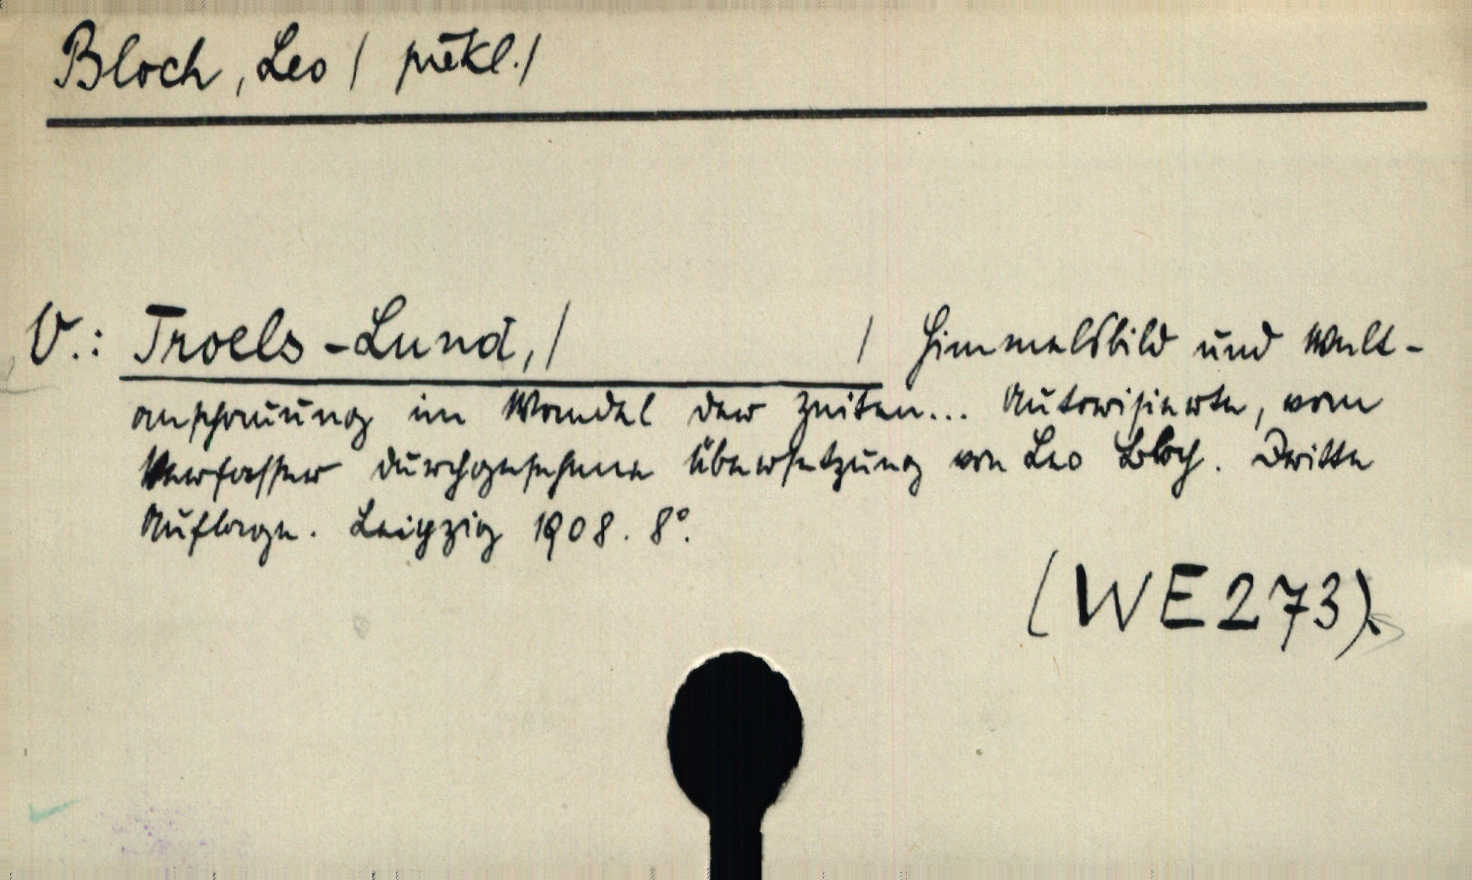 Bloch, Leo / překl./
V.: Troels-Lund, / / Himmelsbild und Welt-
anschauung im Wandel der Zeiten... Autorisierte, vom
Verfasser durchgesehene Übersetzung von Leo Bloch. Dritte
Auflage. Leipzig 1908. 8°.
(WE 273).